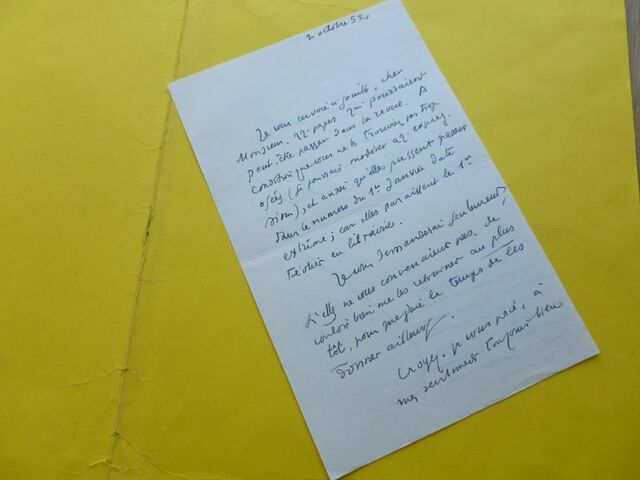 2 octobre 52
Je vous envoie ci-joint, cher
Monsieur, 22 pages qui pourraient
peut-être passer dans la revue. A
condition que vous ne les trouviez pas trop
osées (je pourrais modérer qq expres-
sions), et aussi qu'elles puissent passer
dans le numéro du 1er Janvier date
extrême; car elles paraissent le 1er
Février en librairie.
Je vous demanderai seulement,
si elles ne vous convenaient pas, de
vouloir bien me les retourner au plus
tôt, pour que j'aie le temps de les
donner ailleurs.
Croyez, je vous prie, à
mes sentiments toujours bien